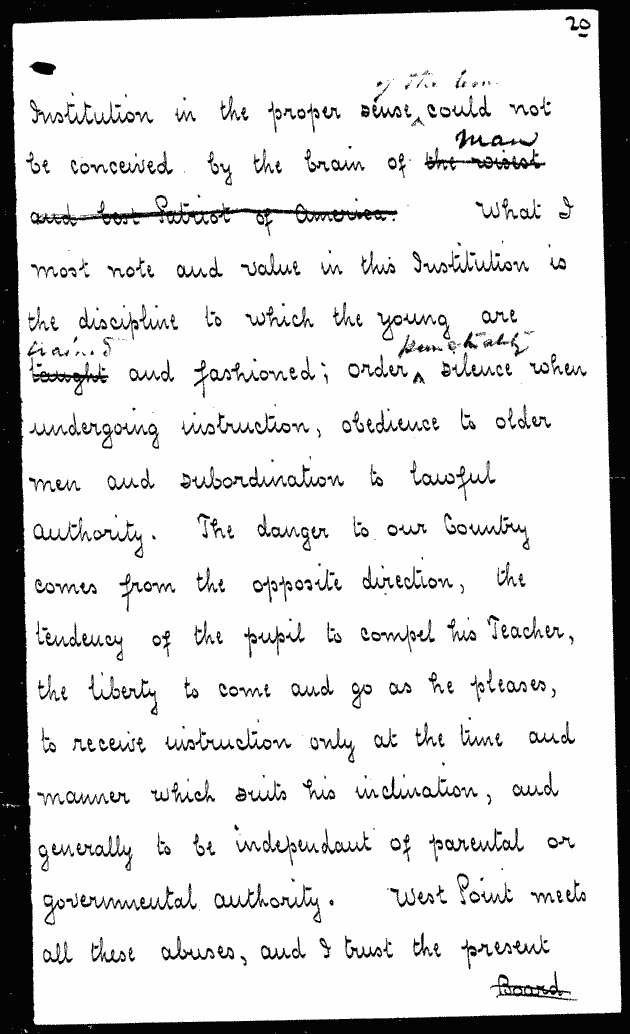 20
of the term
Institution in the proper sense, could not
man
be conceived by the brain of the wisest
and best Patriot of America. What I
most note and value in this Institution is
the discipline to which the young are
trained punctuality
taught and fashioned; order, silence when
undergoing instruction, obedience to older
men and subordination to lawful
authority. The danger to our Country
comes from the opposite direction, the
tendency of the pupil to compel his Teacher,
the liberty to come and go as he pleases,
to receive instruction only at the time and
manner which suits his inclination, and
generally to be independant of parental or
governmental authority. West Point meets
all these abuses, and I trust the present
Board